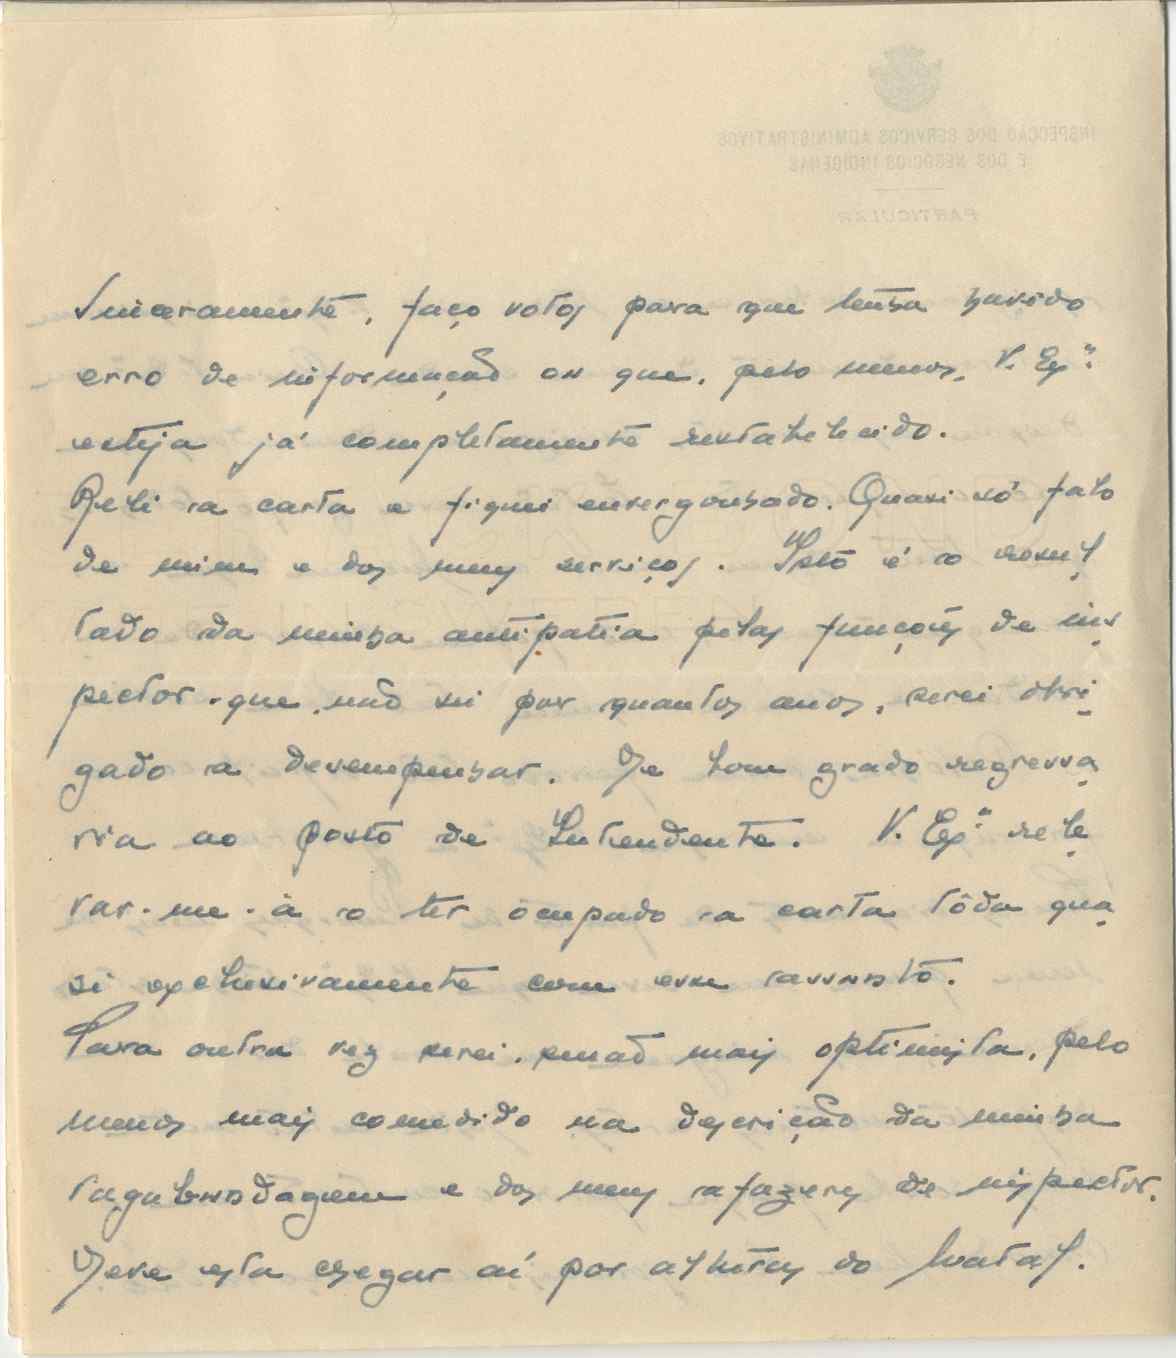 INSPECÇÃO DOS SERVIÇOS ADMINISTRATIVOS
E DOS NEGÓCIOS INDÍGENAS
PARTICULAR
Sinceramente, faço votos para que tenha havido
erro de informação ou que, pelo menos, V. Exª.
esteja já completamente restabelecido.
Reli a carta e fiquei envergonhado. Quasi só falo
de mim e dos meus serviços. Isto é o resul-
tado da minha antipatia pelas funções de ins-
pector que, não sei por quantos anos, serei obri-
gado a desempenhar. De bom grado regressa-
ria ao posto de Intendente. V. Exª. rele-
var-me-á o ter ocupado a carta tôda qua-
si exclusivamente com esse assunto.
Para outra vez serei, senão mais optimista, pelo
menos mais comedido na descrição da minha
vagabundagem e dos meus afazeres de inspector.
Deve esta chegar aí por alturas do Natal.